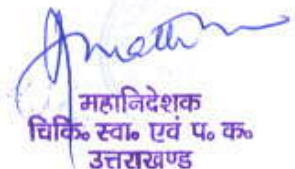 महानिदेशक
चिकि० स्वा० एवं प० क०
उत्तराखण्ड